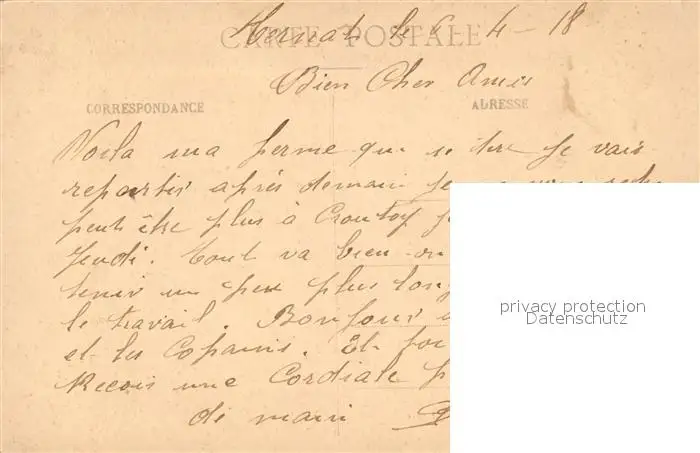 le 6 4 - 18
CARTE POSTALE
Bien Cher Amis
CORRESPONDANCE
ADRESSE
Voila ma perme qui se tire je vais
repartir après demain je
peut être plus à Croutoy
Jeudi. Tout va bien on
tenir un peu plus long
le travail. Bonjour
et les Copains. Et
Recois une Cordiale p
de main
privacy protection
Datenschutz